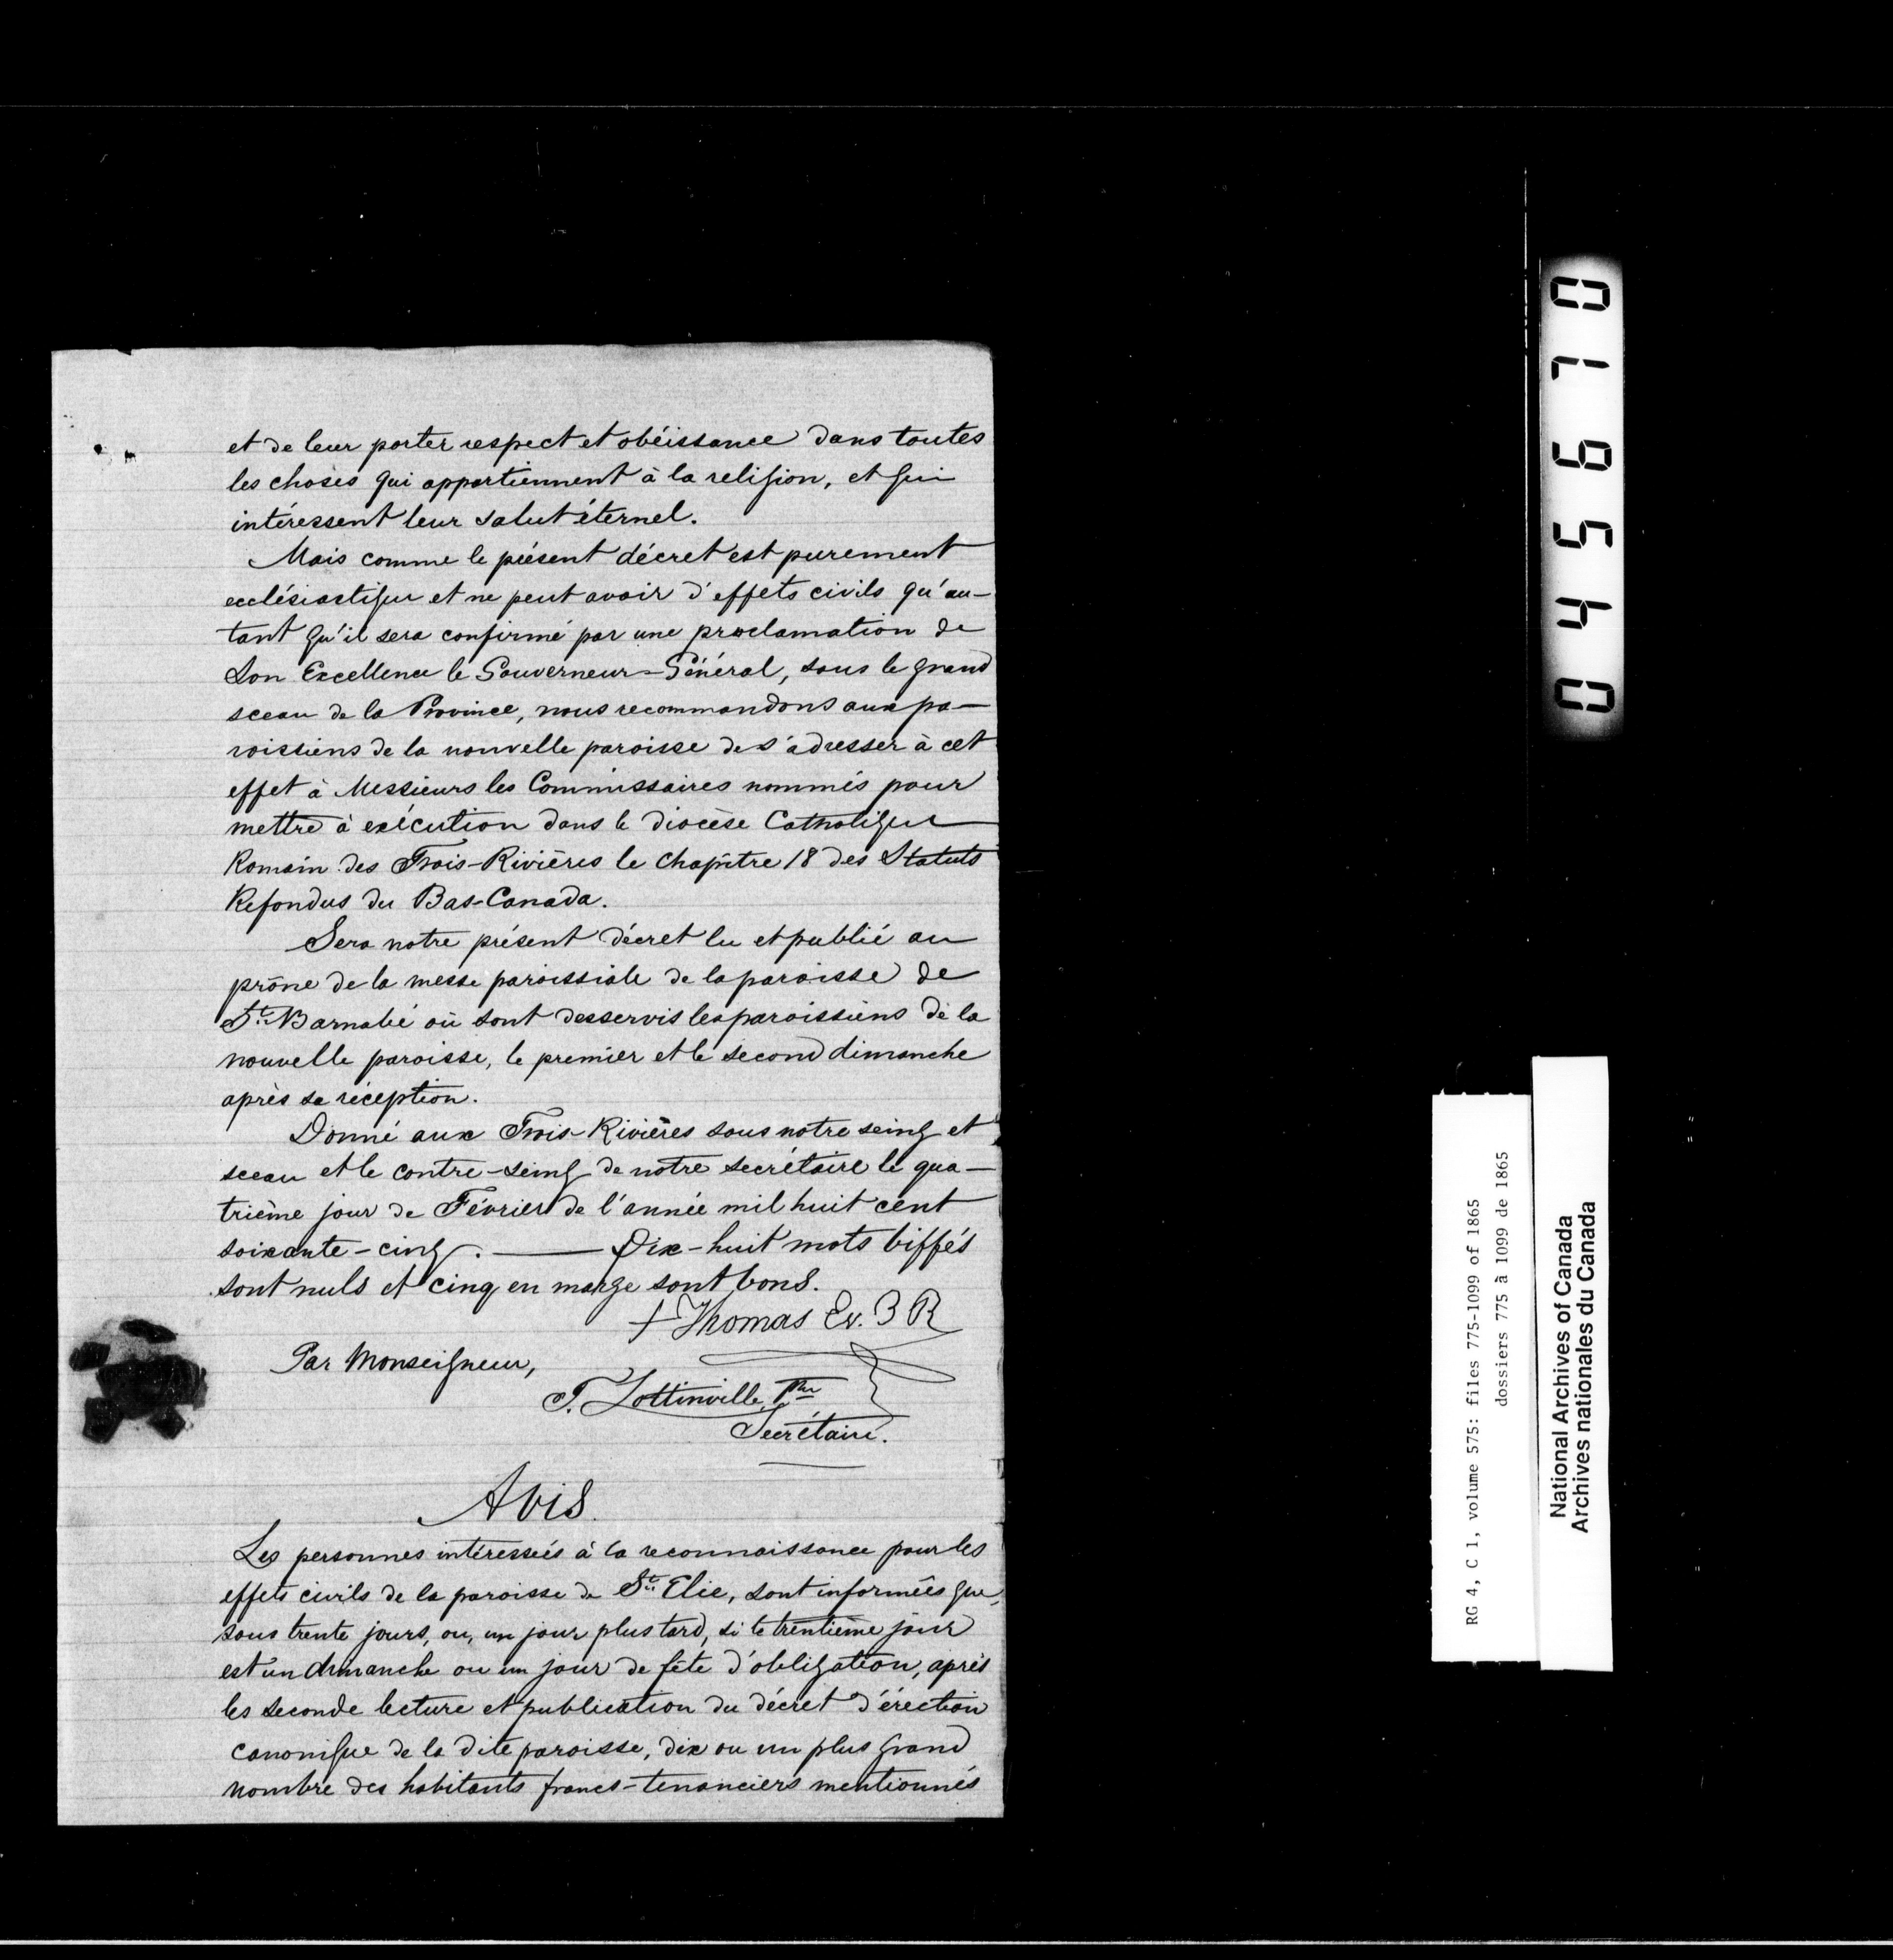 et de leur porter respect et obéissance dans toutes
les choses qui appartiennent à la religion, et qui
intéressent leur salut éternel.
Mais comme le présent décret est purement
ecclésiastique et ne peut avoir d'effets civils qu'au-
tant qu'il sera confirmé par une proclamation de
Son Excellence le Gouverneur-Général, sous le grand
sceau de la Province, nous recommandons aux pa-
roissiens de la nouvelle paroisse de s'adresser à cet
effet à Messieurs les Commissaires nommés pour
mettre à exécution dans le diocèse Catholique
Romain des Trois-Rivières le chapitre 18 des Statuts
Refondus du Bas-Canada.
Sera notre présent décret lu et publié au
prône de la messe paroissiale de la paroisse de
St. Barnabé où sont desservis les paroissiens de la
nouvelle paroisse, le premier et le second dimanche
après sa réception.
Donné aux Trois-Rivières sous notre seing et
sceau et le contre-seing de notre secrétaire le qua-
trième jour de Février de l'année mil huit cent
soixante-cinq. — Dix-huit mots biffés
sont nuls et cinq en marge sont bons.
+ Thomas Ev. 3 R
Par Monseigneur,
T. Lottinville, Ptre
Secrétaire.
Avis.
Les personnes intéressées à la reconnaissance pour les
effets civils de la paroisse de St. Elie, sont informées que,
sous trente jours, ou, un jour plus tard, si le trentième jour
est un dimanche ou un jour de fête d'obligation, après
les seconde lecture et publication du décret d'érection
canonique de la dite paroisse, dix ou un plus grand
nombre des habitants francs-tenanciers mentionnés
045670
RG 4, C 1, volume 575: files 775-1099 of 1865
dossiers 775 à 1099 de 1865
National Archives of Canada
Archives nationales du Canada